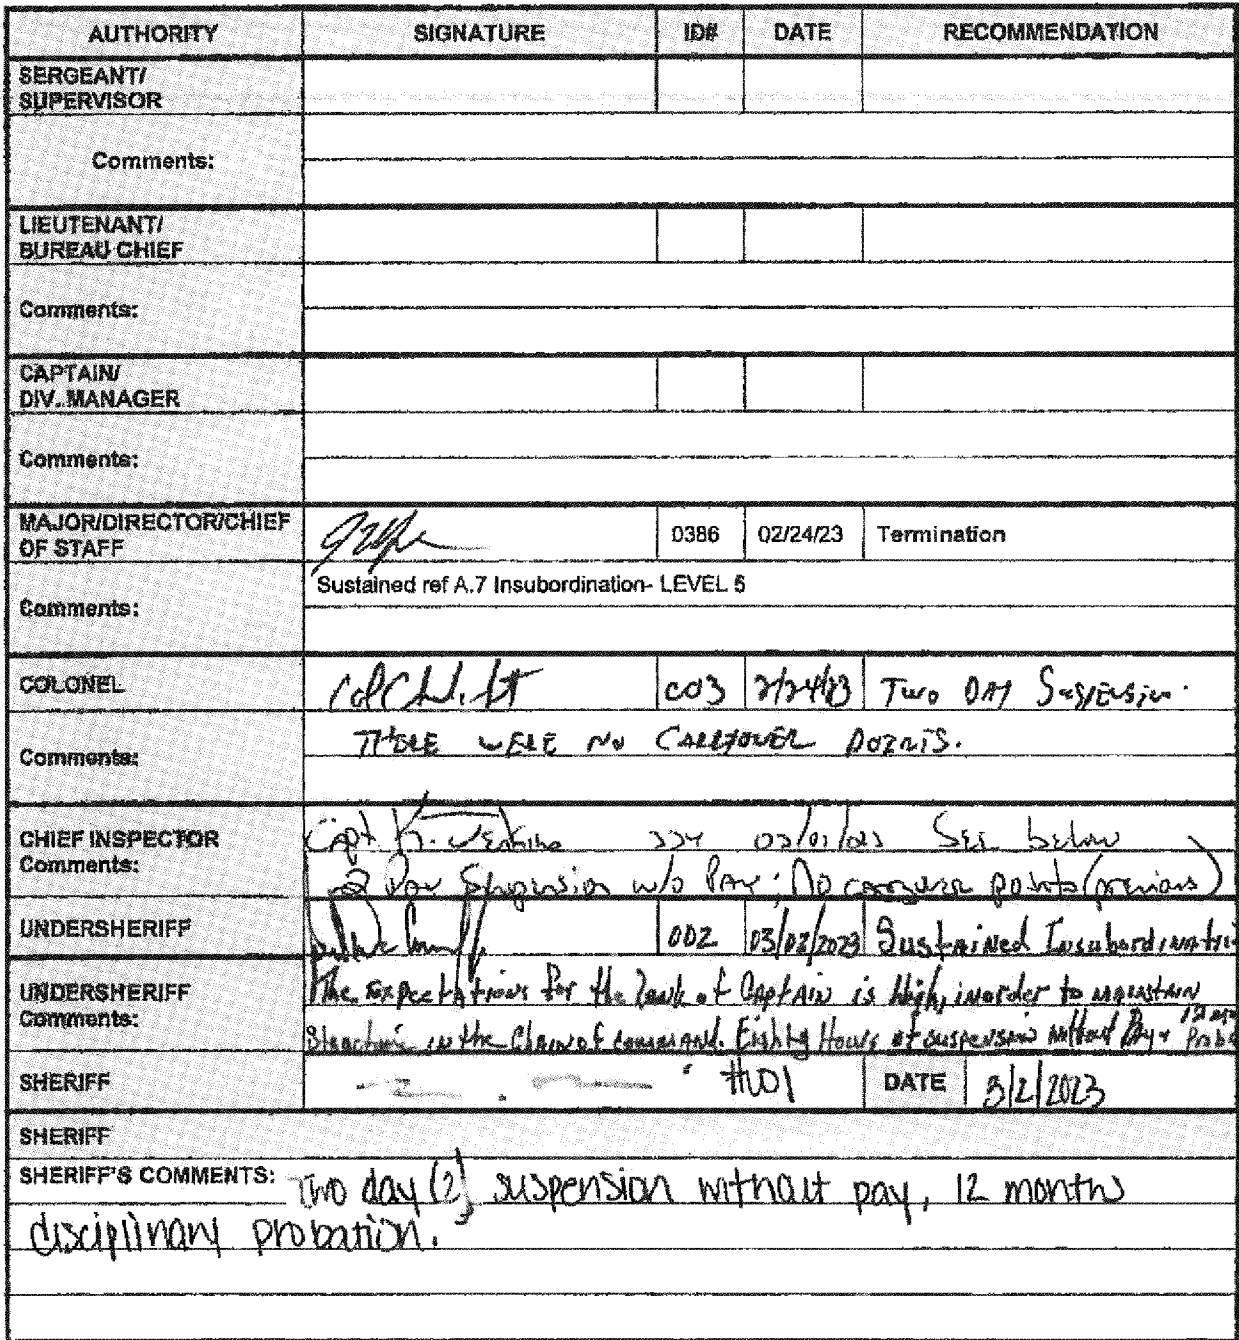 AUTHORITY SIGNATURE ID# DATE RECOMMENDATION
SERGEANT/
SUPERVISOR
Comments:
LIEUTENANT/
BUREAU CHIEF
Comments:
CAPTAIN/
DIV. MANAGER
Comments:
MAJOR/DIRECTOR/CHIEF
OF STAFF 0386 02/24/23 Termination
Sustained ref A.7 Insubordination- LEVEL 5
Comments:
COLONEL Col 003 2/24/23 Two DAY Suspension.
THERE WERE NO CARRYOVER POINTS.
Comments:
CHIEF INSPECTOR Capt K. Jenkins 03/01/23 See below
Comments: 2 Day Suspension w/o Pay; No carryover points (previous)
UNDERSHERIFF 002 03/02/2023 Sustained Insubordinati
UNDERSHERIFF The expectations for the rank of Captain is high, inorder to maintain
Comments: Structure in the Chain of command. Eighty Hours of suspension without Pay + 12 mo Proba
SHERIFF #001 DATE 3/2/2023
SHERIFF
SHERIFF'S COMMENTS: Two day (2) suspension without pay, 12 months
disciplinary probation.